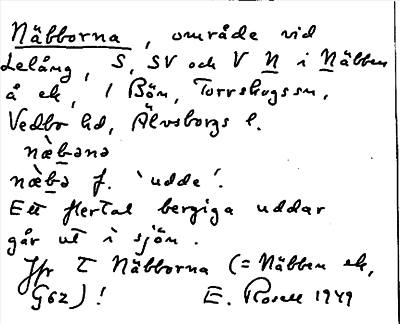 Näbborna, område vid
Lelång, S, SV och V N i Näbben
å ek, 1 Bön, Torrskogs sn,
Vedbo hd, Älvsborgs l.
næ̀bənə
næ̀bə f. 'udde'.
Ett flertal bergiga uddar
går ut i sjön.
Jfr T Näbborna (= Näbben ek,
G62)! E. Rosell 1949